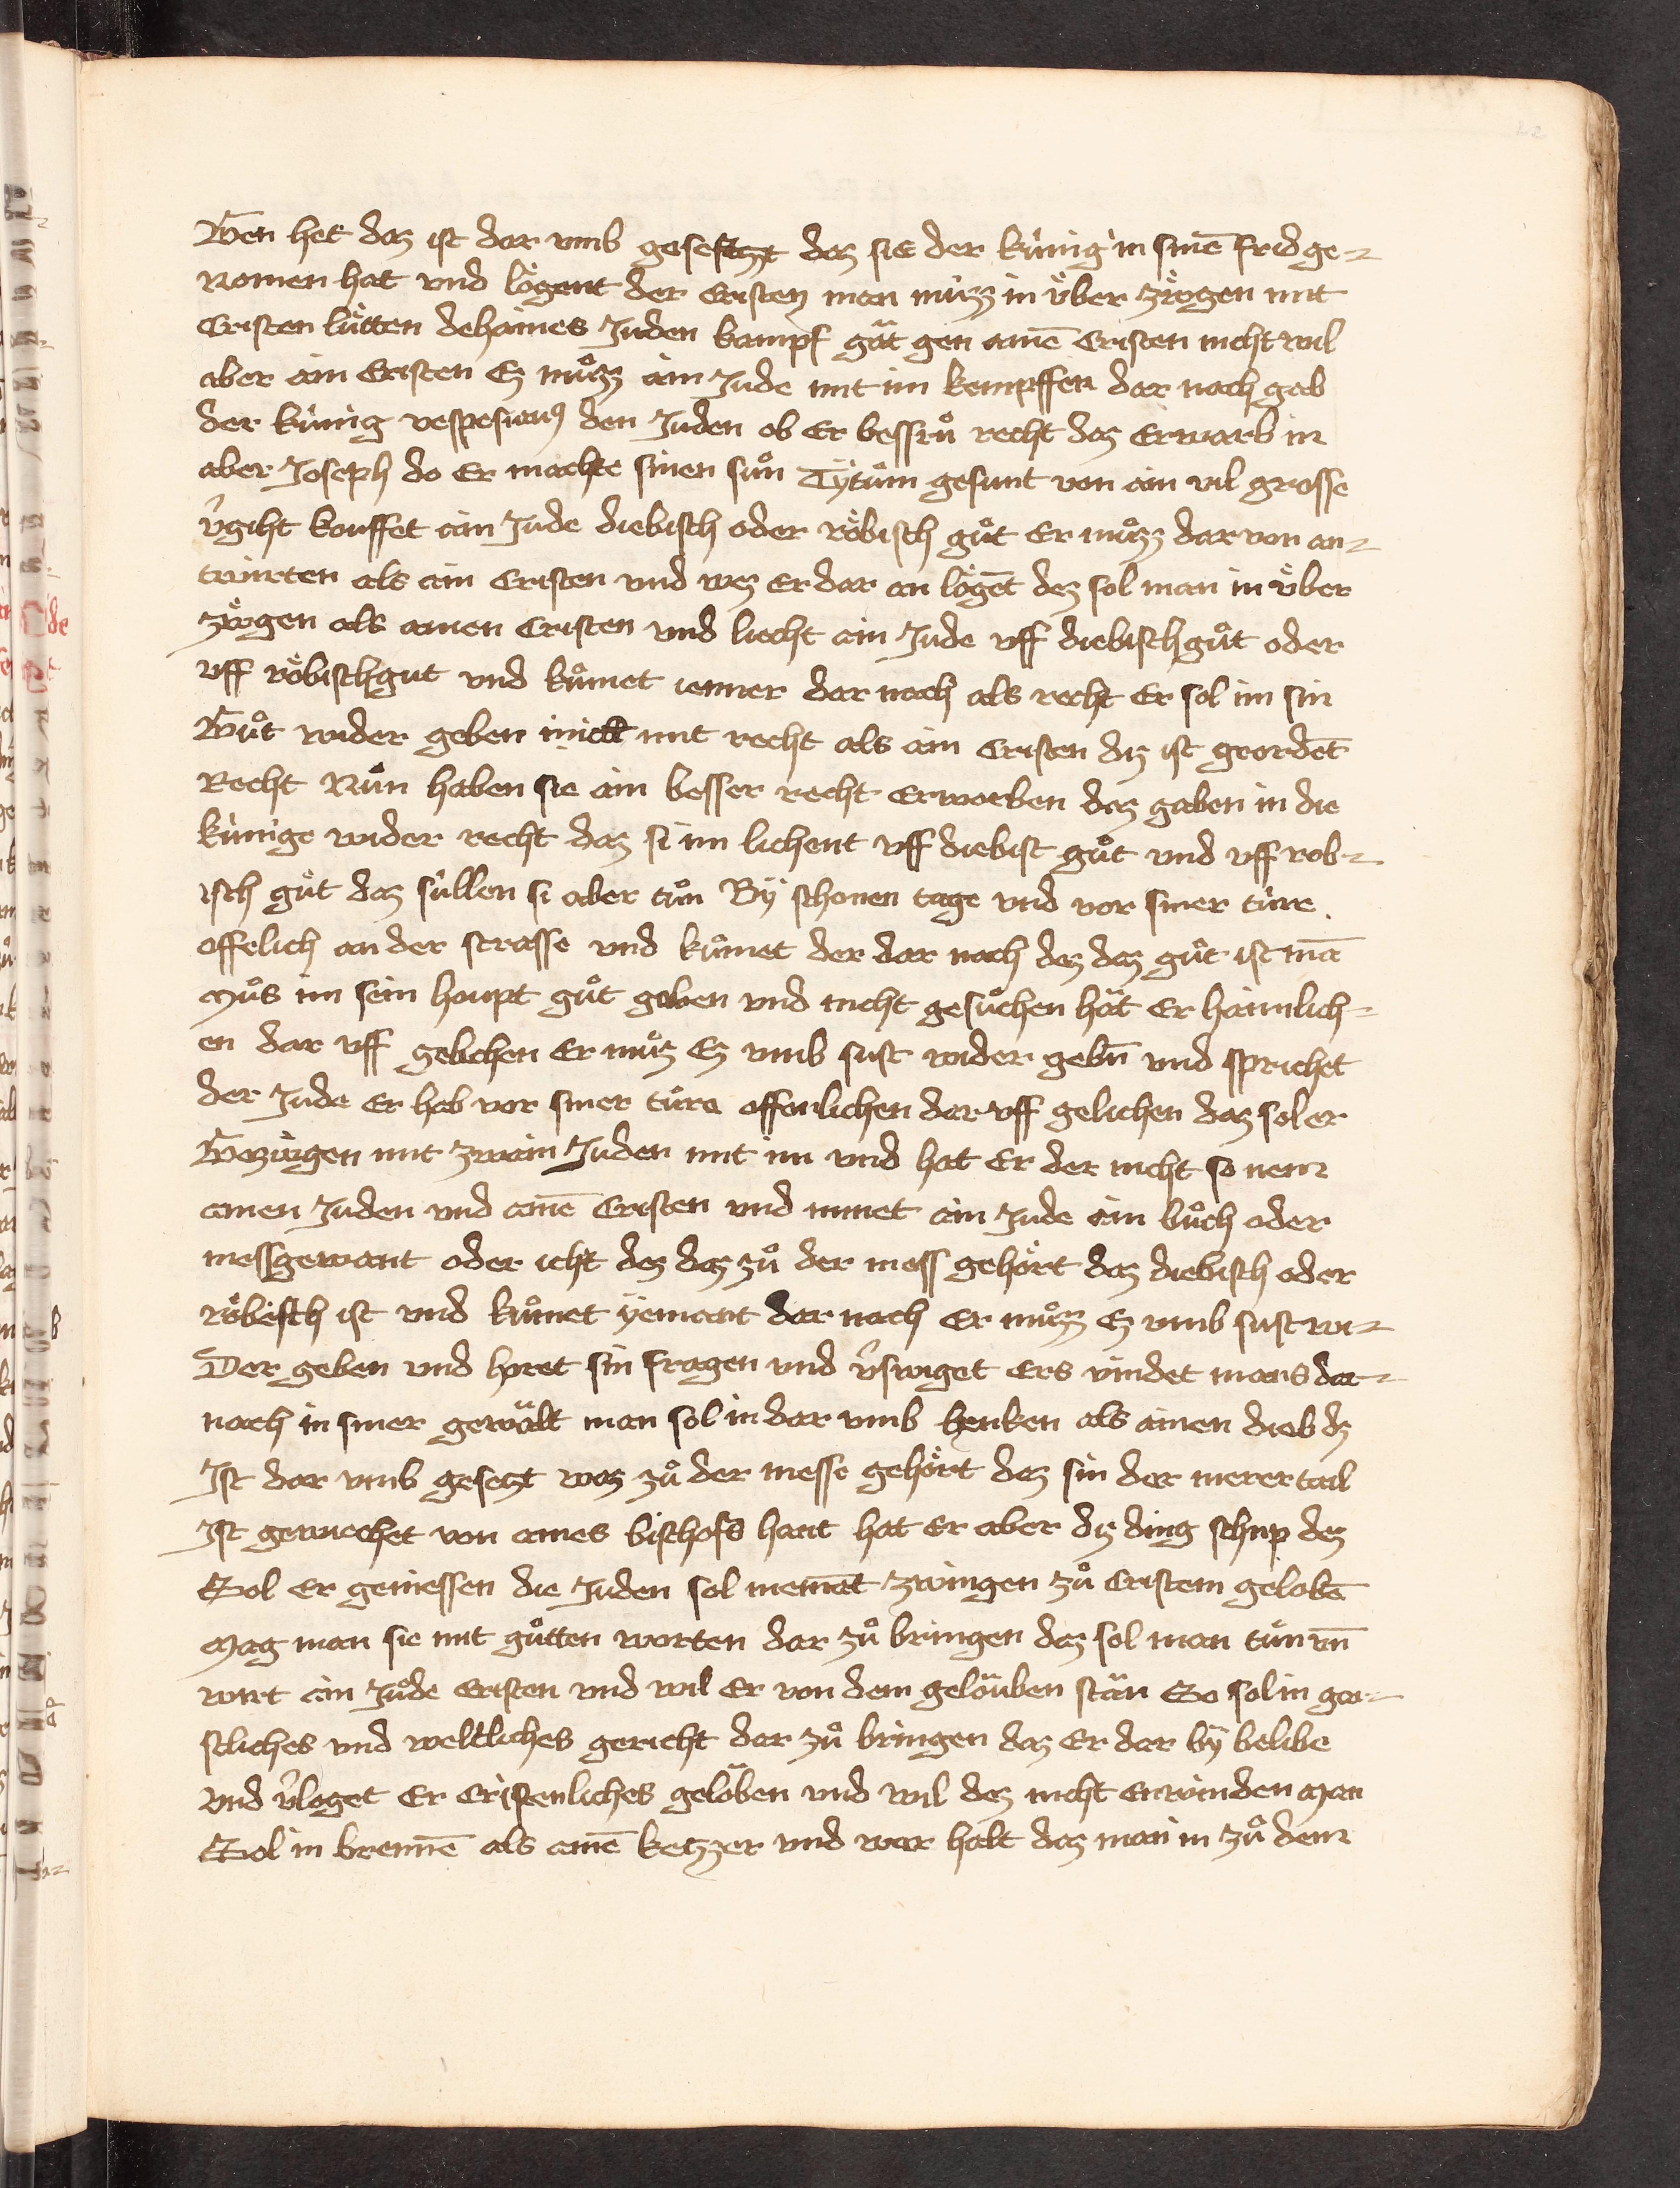 Ben het daz ist dar vmb gesetzt daz sie der kúnig in sinē frid ge-
nomen hat vnd lögent der Cristen man múzz in v́ber zúgen mit
Cristen lútten dehaines Juden kampf gät gen ainē Cristen nicht wil
aber ain Cristen Ez můzz ain Jude mit im kempffen dar nach gab
der kúnig vespesianꝰ den Juden ob Er bessrů recht daz Erwarb in
aber Joseph do Er machte sinen sůn Tÿtům gesunt von ain vil grosse
v̉giht kouffet ain Jude diebisch oder röbisch gůt Er můzz dar von an-
twúrten als ain Cristen vnd wez Er dar an lögēt dez sol man in v́ber
zúgen als ainen Cristen vnd liecht ain Jude vff diebisch gůt oder
vff röbisch gut vnd kůmet ienner dar nach als recht Er sol im sin
Gůt wider geben mit recht als ain Cristen diz ist geordēt
Recht Nůn haben sie ain besser recht Erworben daz gaben in die
kúnige wider recht daz si im lichent vff diebist gůt vnd vff rob-
isch gůt daz súllen si aber tůn Bÿ schonen tage vnd vor siner túre
offelich an der strasse vnd kůmet der dar nach dez daz gůt ist mā
Můs im sein houpt gůt geben vnd nicht gesůchen hät Er haimlich-
en dar vff gelichen Er můz Ez vmb sust wider gebn̄ vnd sprichet
der Jude Er hab vor siner túre offenlichen dar vff gelichen daz sol er
Bezúgen mit zwain Juden mit im vnd hat Er der nicht so nem
ainen Juden vnd ainē Cristen vnd nimet ain Jude ain bůch oder
messgewant oder icht dez daz zů der mess gehört daz diebisch oder
röbisch ist vnd kůmet ÿemant dar nach Er můzz Ez vmb sust wi-
Der geben vnd höret sin fragen vnd v̉swiget Ers vindet mans dar-
nach in siner gewält man sol in dar vmb henken als ainen dieb dz
Ist dar vmb gesetzt waz zů der messe gehört dez sin der merer tail
Ist gewiechet von aines bischofs hant hat Er aber diz ding schup dez
Sol Er geniessen die Juden sol niemāt zwingen zů Cristem gelobē
Mag man sie mit gůtten worten dar zů bringen daz sol man tůn vn̄
wirt ain Jude Cristen vnd wil Er von dem geloüben stän So sol in gai-
stliches vnd weltliches gericht dar zů bringen daz Er dar bÿ belibe
vnd v̉loget Er Cristenliches geloben vnd wil dez nicht Erwinden Man
Sol in brennē als ainē ketzzer vnd war halt daz man in zů dem